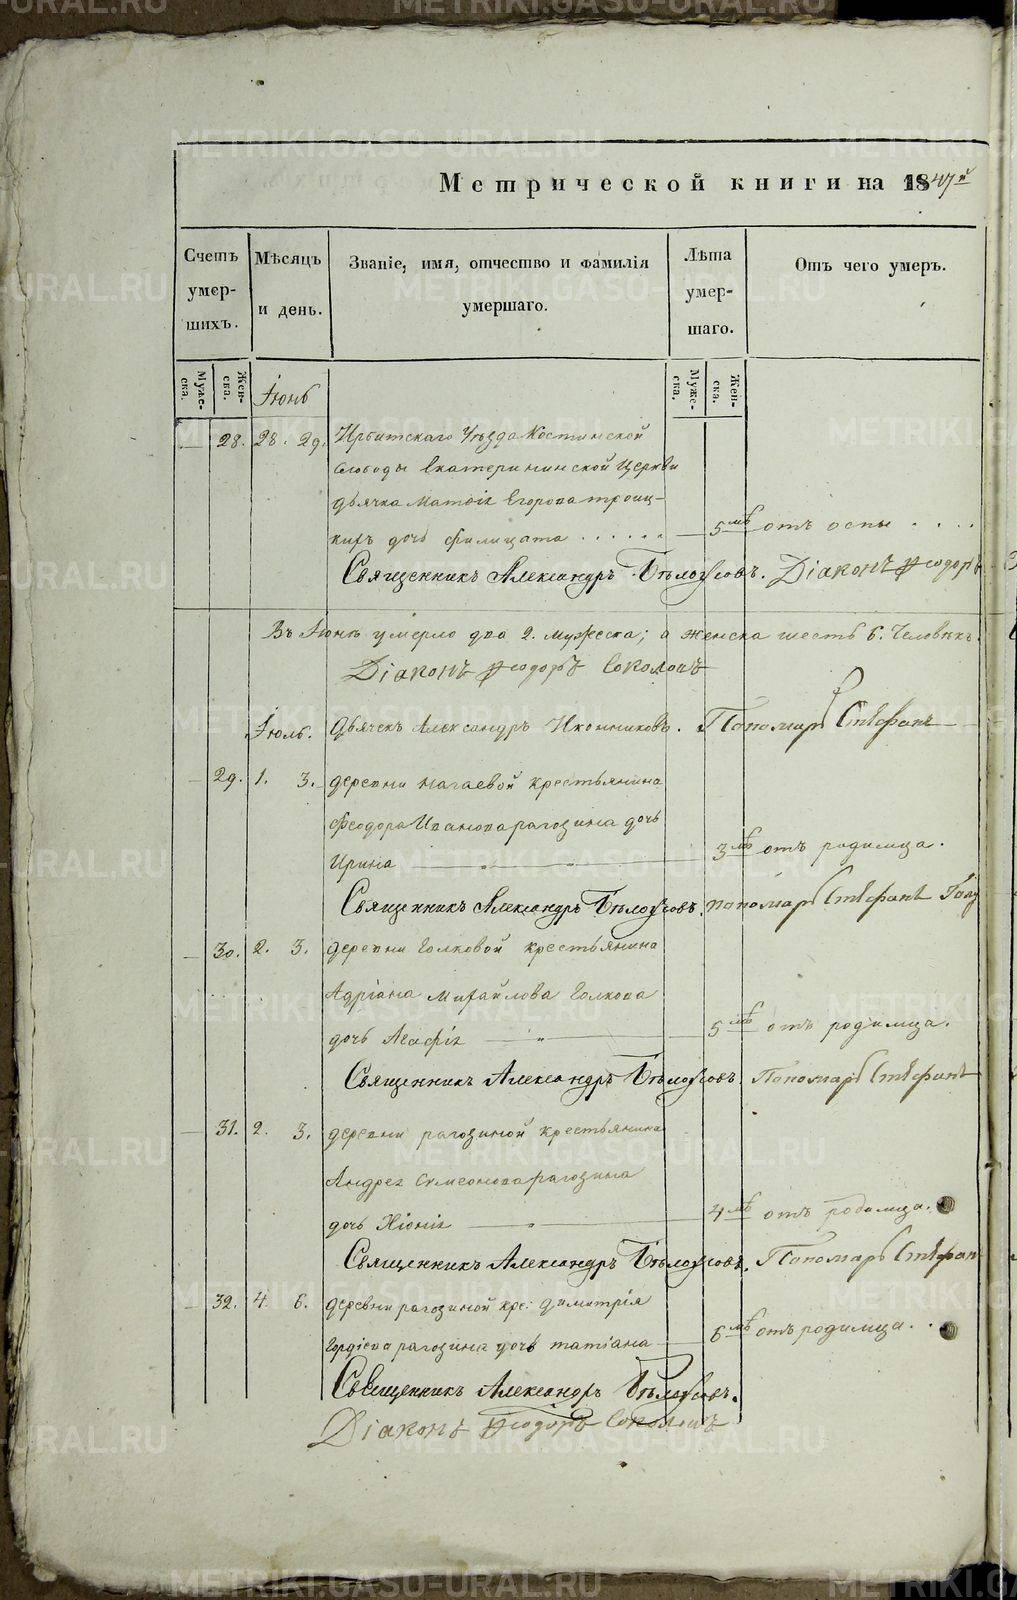 Метрической книги на 1847й
Счетъ умер-шихъ.
Мѣсяцъ и день.
Званіе, имя, отчество и фамилія умершаго.
Лѣта умер-шаго.
Отъ чего умеръ.
Муже-ска.
Жен-ска.
Іюнь
Муже-ска.
Жен-ска.
28. 28. 29. Ирбитскаго Уѣзда Костинской
слободы Екатерининской Церкви
дьячка Матѳія Егорова троиц-
каго дочь Филицата . . . . . . 5 лѣ отъ оспы . . . .
Священникъ Александръ Бѣлоусовъ. Діаконъ Ѳеодоръ
Въ Іюнѣ умерло два 2. мужеска; а женска шесть 6. Человѣкъ.
Діаконъ Ѳеодоръ Соколовъ
Іюль. Дьячекъ Александръ Иконниковъ. Пономарь Стефанъ
29. 1. 3. деревни Нагаевой крестьянина
Феодора Иванова рагозина дочь
Ирина 3 лѣ отъ родимца.
Священникъ Александръ Бѣлоусовъ. пономарь Стефанъ
30. 2. 3. деревни Голковой крестьянина
Адріана Михайлова Голкова
дочь Агафія 5 лѣ отъ родимца.
Священникъ Александръ Бѣлоусовъ. Пономарь Стефанъ
31. 2. 3. деревни рагозиной крестьянина
Андрея Симеонова рагозина
дочь Хіонія 4 лѣ отъ родимца.
Священникъ Александръ Бѣлоусовъ. Пономарь Стефан
32. 4. 6. деревни рагозиной кре: Димитрія
Гордіева рагозина дочь татіана 6 лѣ отъ родимца. . .
Священникъ Александръ Бѣлоусовъ.
Діаконъ Ѳеодоръ Соколовъ
METRIKI.GASO-URAL.RU